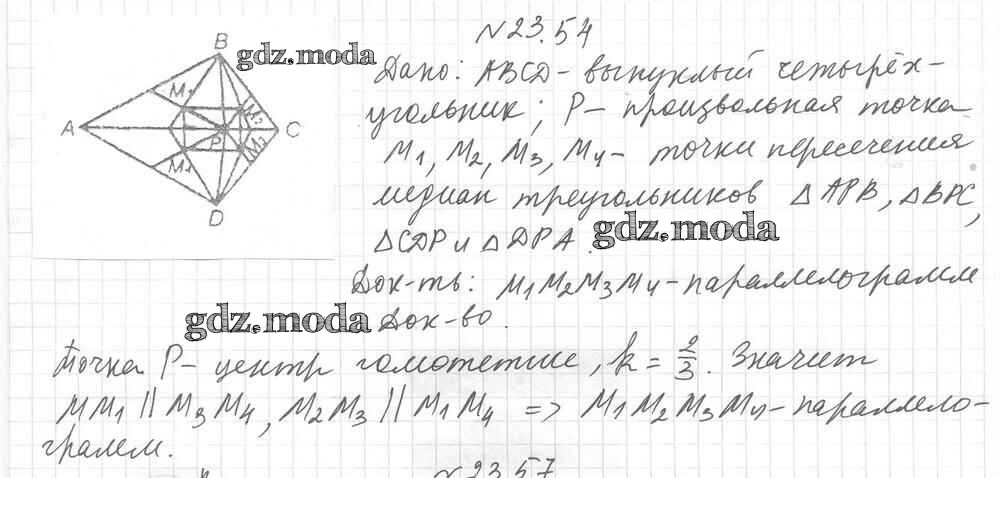 N23.54
B
gdz.moda
Дано: ABCD - выпуклый четырёх-
M1
угольник; P - произвольная точка
M2
A
P
C
M1, M2, M3, M4 - точки пересечения
M3
M4
медиан треугольников △APB, △BPC,
D
△CDP и △DPA.
gdz.moda
Док-ть: M1M2M3M4 - параллелограмм
gdz.moda
Док-во.
Точка P - центр гомотетии, k = 2/3. Значит
MM1 || M3M4, M2M3 || M1M4 => M1M2M3M4 - параллело-
грамм.
N23.57